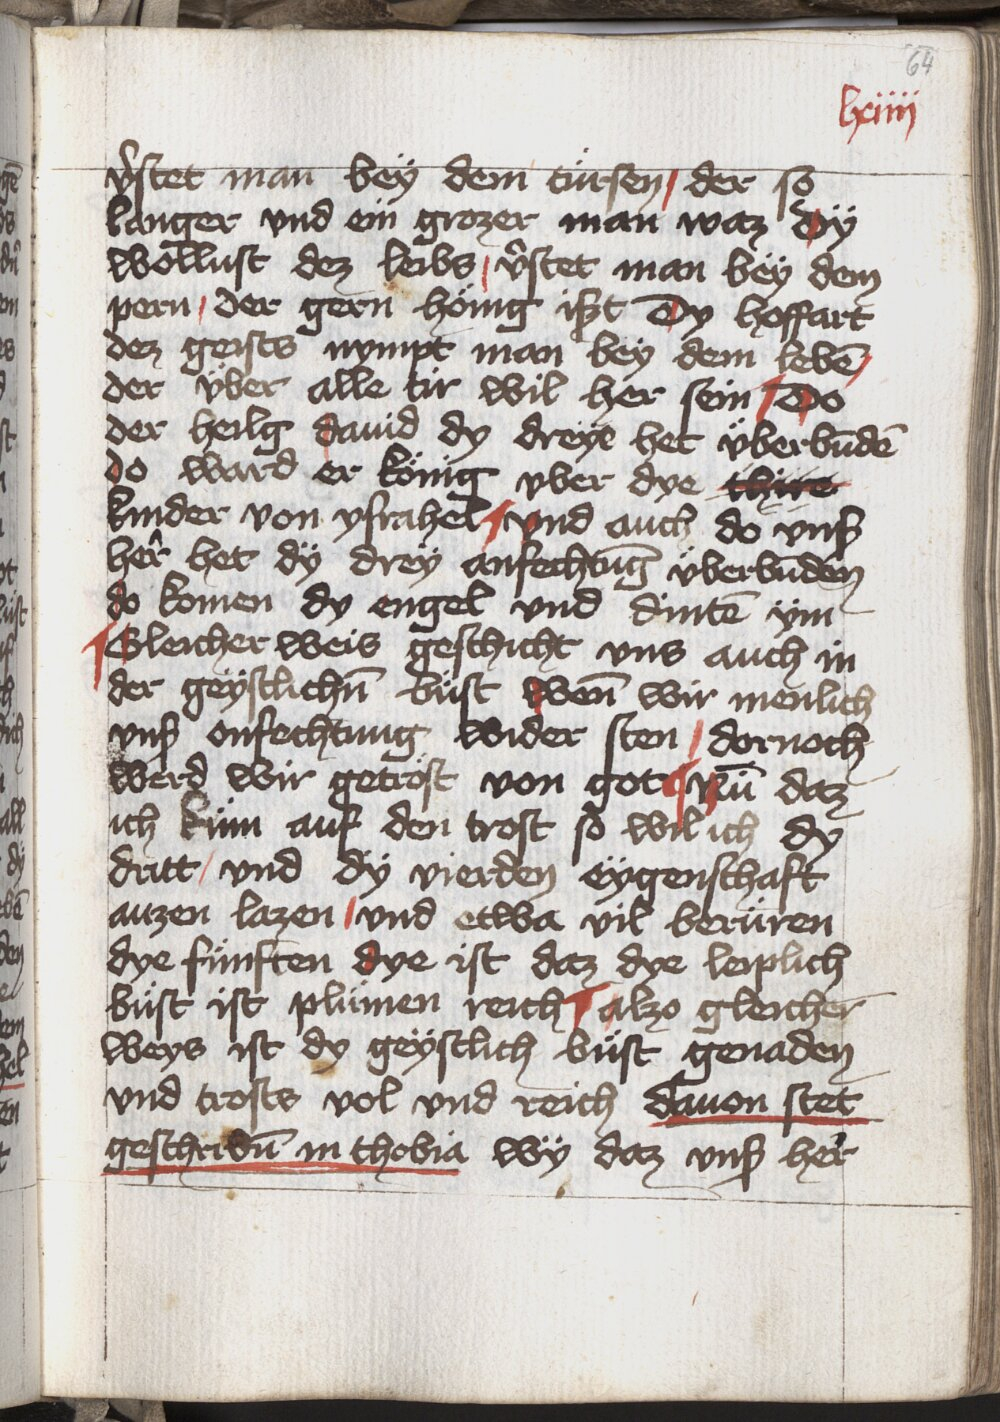 64
lxiiii
v̉stet man beÿ dem türsen / der so
langer vnd ein grozer man waz dÿ
wollust dez leibs / v̉stet man beÿ dem
pern / der gern hönig iszt Dy hoffart
dez geists nympt man beÿ dem lebē /
der ÿber alle tir wil her sein / Do
der heilg dauid dy dreÿe het ÿberbūdē
do ward er könig vber dye
kinder von ysrahel ¶ vnd auch do vnß
her̄ het dÿ dreÿ anfechtūg ÿberbūden
do komen dy engel vnd dintē ÿm
¶ Gleicher weis geschicht vns auch in
der geÿstlichn̄ büst wen̄ wir menlich
vnß onfechtung wider sten / dornoch
werd wir getröst von got ¶ Nū daz
ich küm auf den trost so wil ich dy
dritt / vnd dÿ vierden eÿgenschaft
auzen lazen / vnd etwa vil berüren
dye fünften dye ist daz dye leiplich
büst ist plümen reich ¶ alzo gleicher
weys ist dy geÿstlich büst genaden
vnd trosts vol vnd reich dauon stet
geschribn̄ in thobia wÿ daz vnß her̄